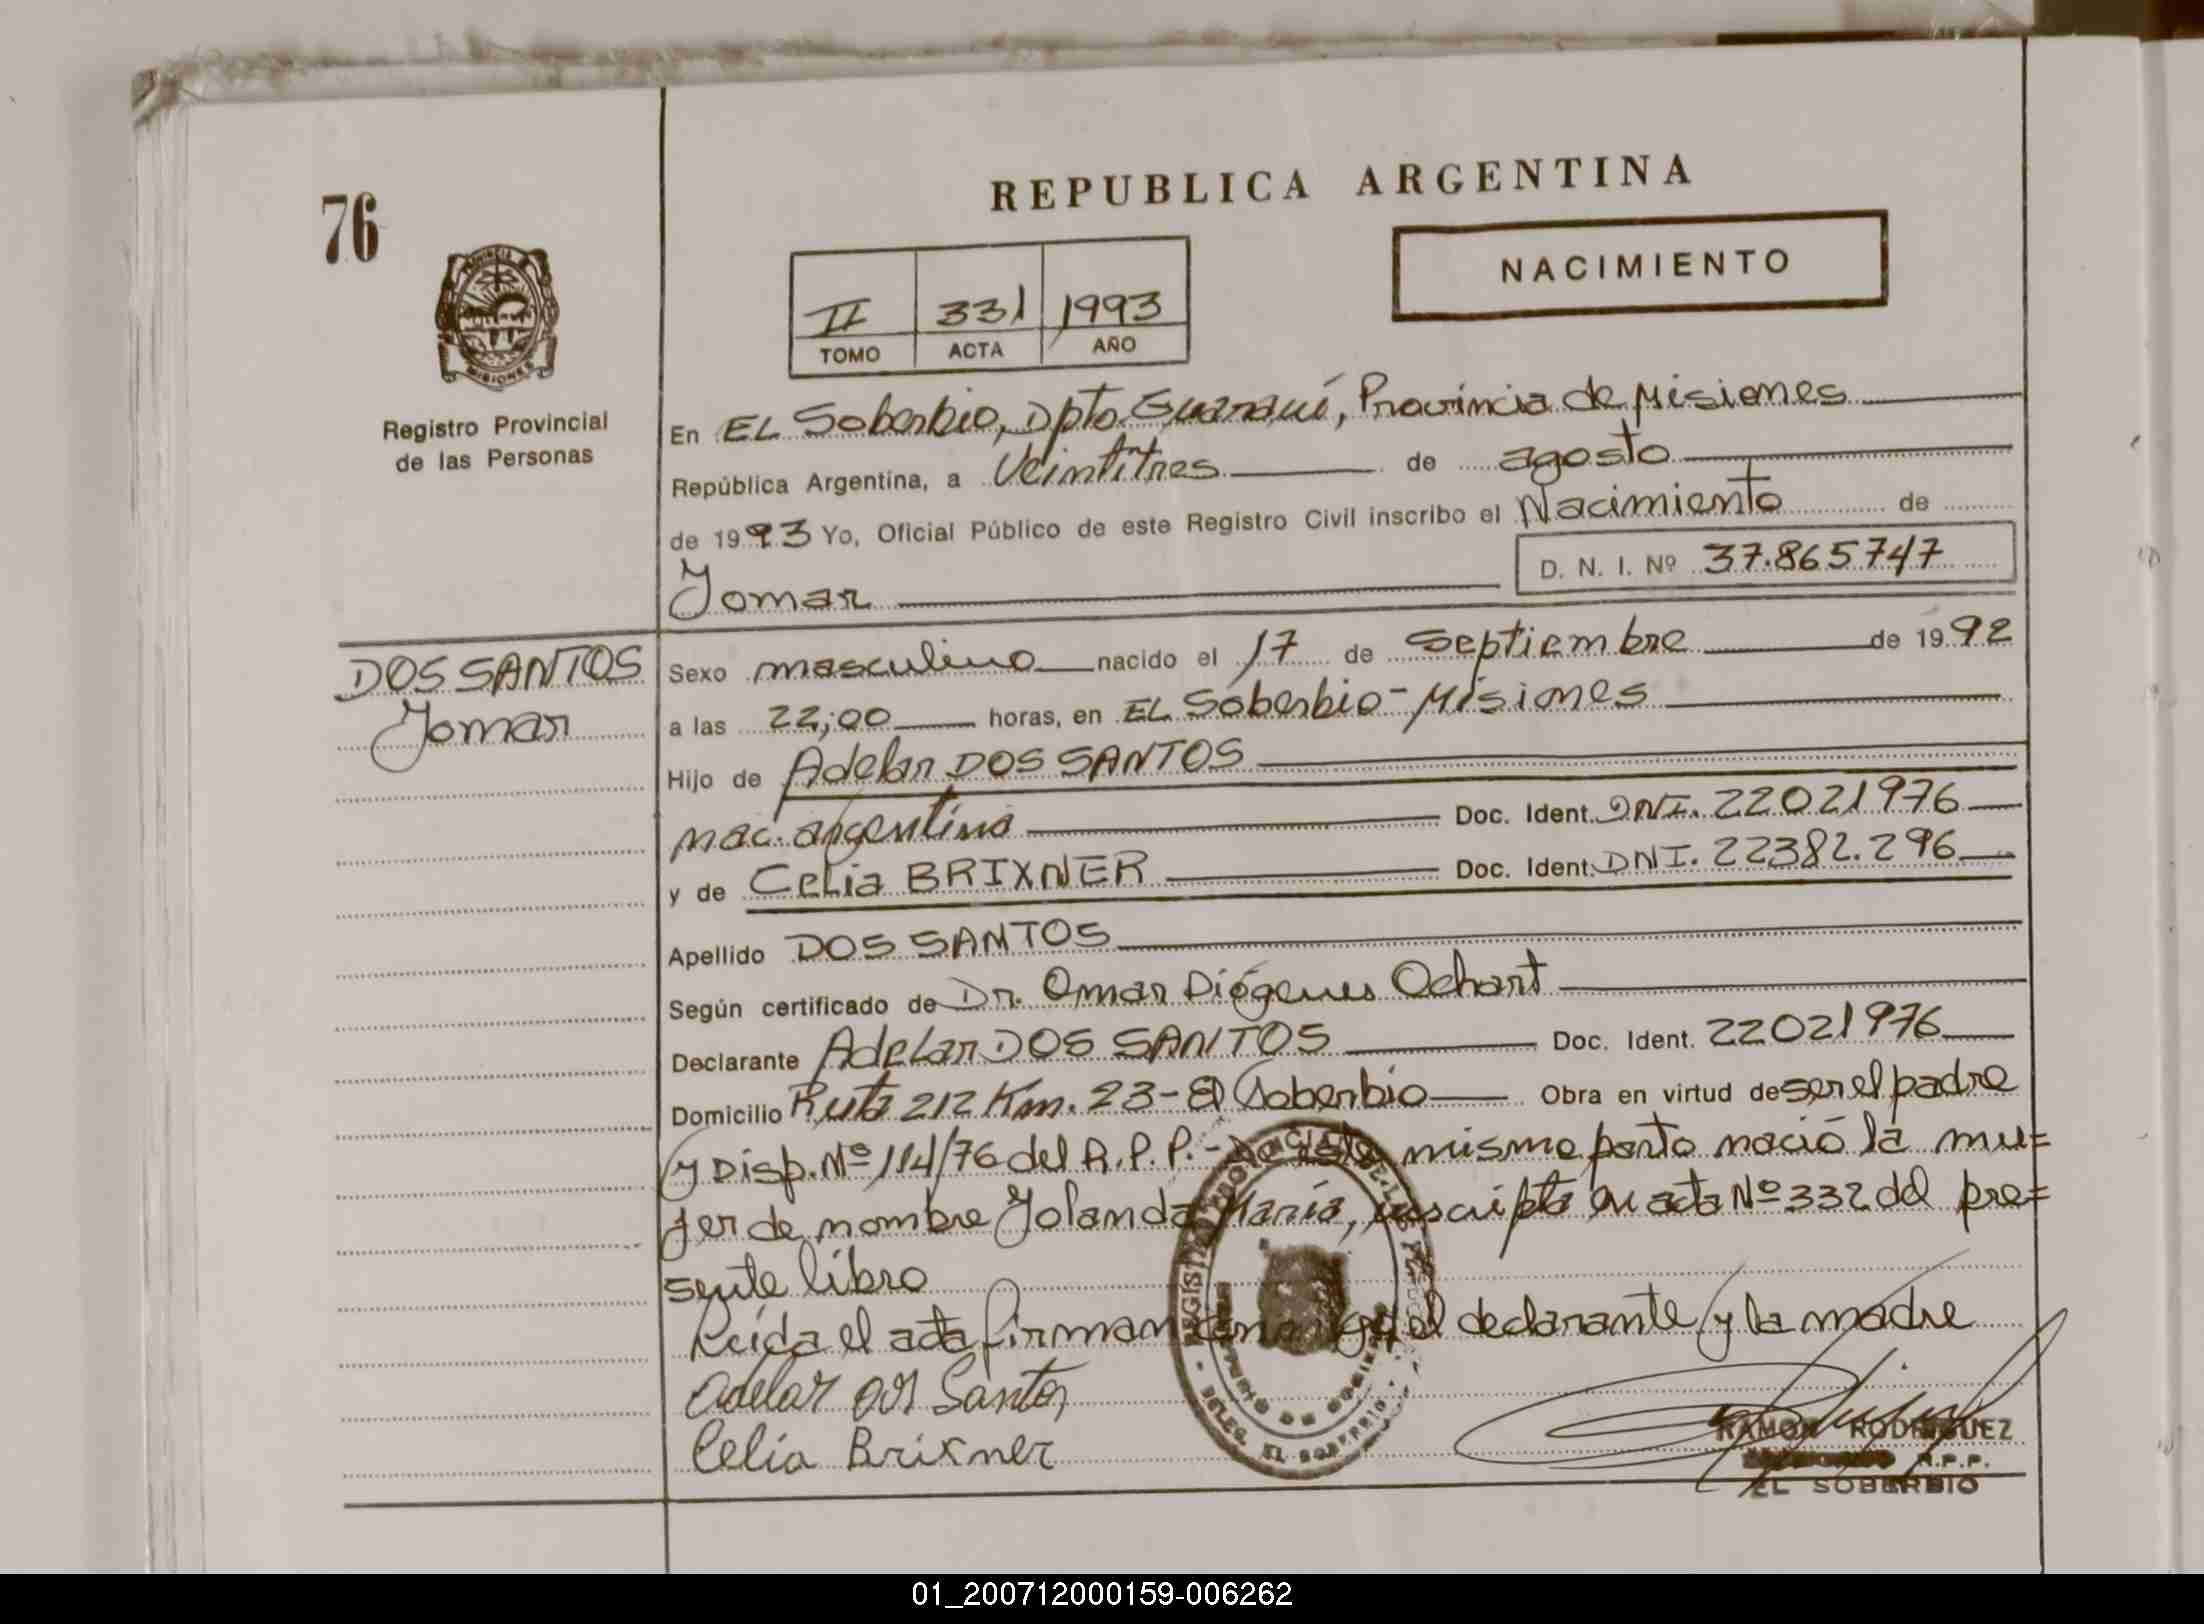 76
PROVINCIA DE
MISIONES
Registro Provincial
de las Personas
REPUBLICA ARGENTINA
NACIMIENTO
II 331 1993
TOMO ACTA AÑO
En EL Soberbio, Dpto. Guaraní, Provincia de Misiones
República Argentina, a Veintitres de agosto
de 1993 Yo, Oficial Público de este Registro Civil inscribo el Nacimiento de
D. N. I. Nº 37.865747
Yomar
DOS SANTOS
Yomar
Sexo masculino nacido el 17 de Septiembre de 1992
a las 22;00 horas, en EL Soberbio - Misiones
Hijo de Adelar DOS SANTOS
nac. argentina Doc. Ident. DNI. 22021976
y de Celia BRIXNER Doc. Ident. DNI. 22382.296
Apellido DOS SANTOS
Según certificado de Dr. Omar Diógenes Ochart
Declarante Adelar DOS SANTOS Doc. Ident. 22021976
Domicilio Ruta 212 Km. 23 - El Soberbio Obra en virtud de ser el padre
y Disp. Nº 114/76 del R.P.P. - De este mismo parto nació la mu=
jer de nombre Yolanda María, inscripta en acta Nº 332 del pre=
sente libro
Leída el acta firman conmigo el declarante y la madre
Adelar dos Santos
Celia Brixner
REGISTRO PROVINCIAL DE LAS PERSONAS
MINISTERIO DE GOBIERNO
DELEG. EL SOBERBIO
RAMON RODRIGUEZ
R.P.P.
EL SOBERBIO
01_200712000159-006262